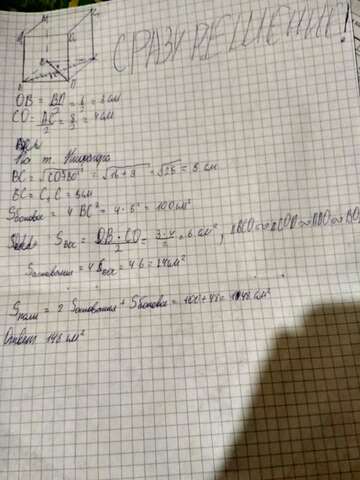 СРАЗУ РЕШЕНИЕ!
OB = BD/2 = 6/2 = 3 см
CO = AC/2 = 8/2 = 4 см
По т. Пифагора
BC = √CO²+BO² = √16+9 = √25 = 5 см
BC = C₁C = 5 см
Sбоковое = 4 BC² = 4·5² = 100 см²
Sвос = OB·CO/2 = 3·4/2 = 6 см²,
Sоснования = 4 Sвос = 4·6 = 24 см²
Sполн = 2 Sоснования + Sбоковое = 100+48 = 148 см²
Ответ 148 см²